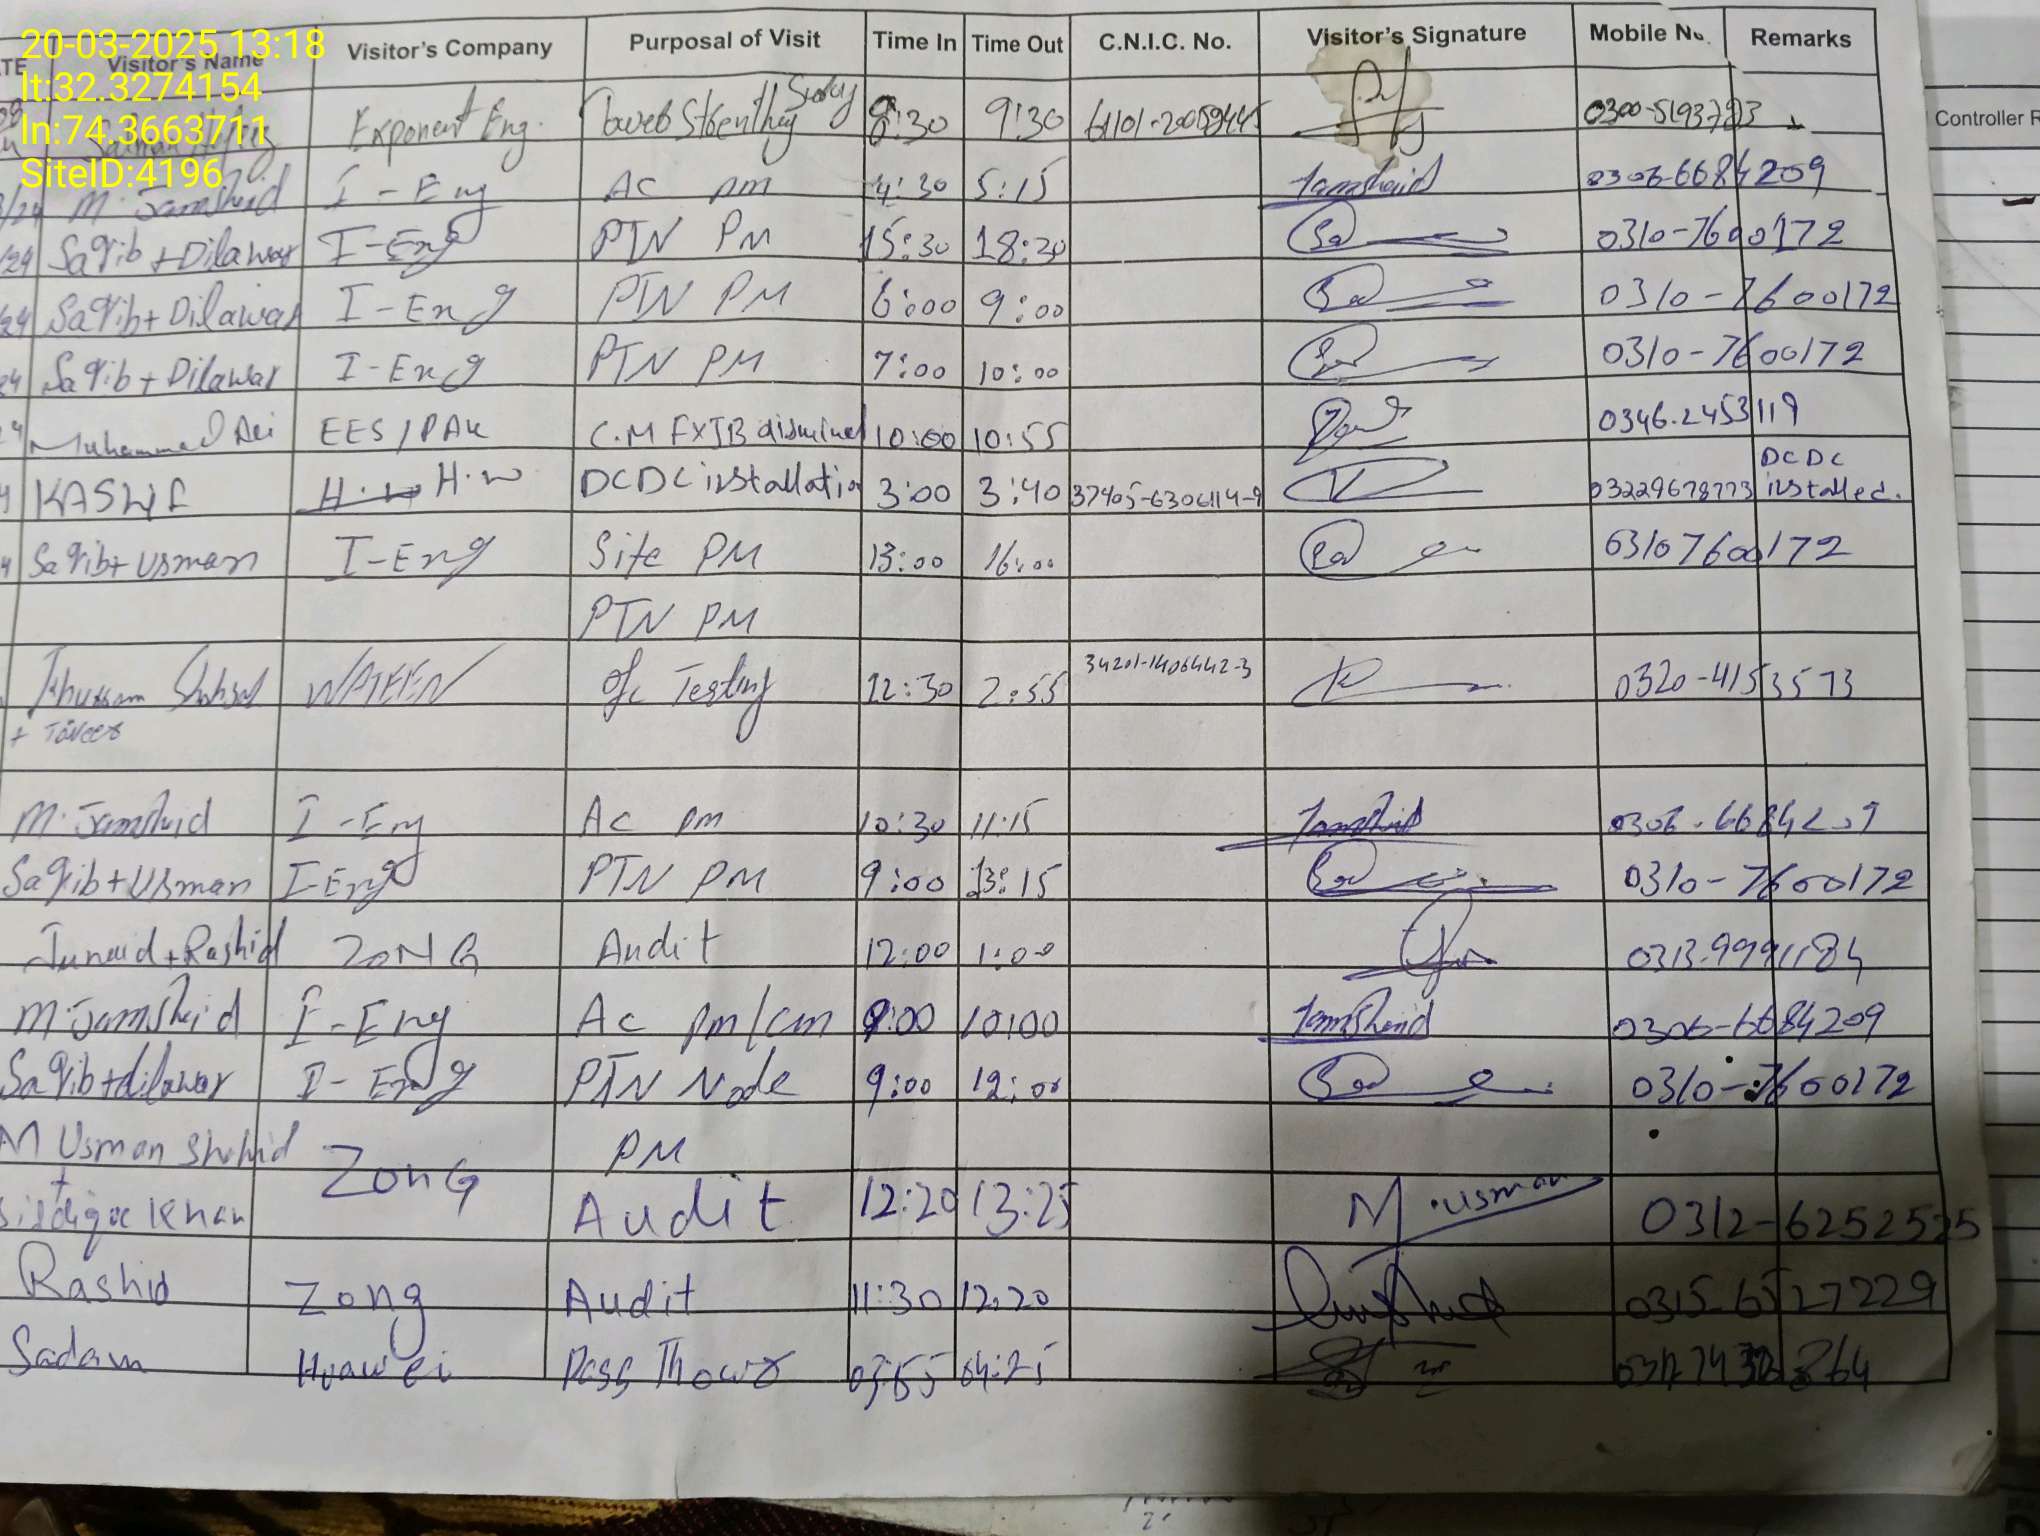 20-03-2025 13:18
lt:32.3274154
ln:74.3663711
SiteID:4196
TE Visitor's Name Visitor's Company Purposal of Visit Time In Time Out C.N.I.C. No. Visitor's Signature Mobile No. Remarks
Controller R
Exponent Eng. 8:30 9:30 0300-5193783
/24 M. Jamshaid I-Eng AC pm 4:30 5:15 Jamshaid 0306-6684209
/24 Saqib+Dilawar I-Eng PTN PM 15:30 18:30 0310-7600172
/24 Saqib+Dilawar I-Eng PTN PM 6:00 9:00 0310-7600172
24 Saqib+Dilawar I-Eng PTN PM 7:00 10:00 0310-7600172
24 Muhammad EES/PAK C.M 10:00 10:55 0346.2453119
KASHIF H.W H.W DCDC installation 3:00 3:40 37405-6306114-9 03229678773 DCDC installed.
Saqib+Usman I-Eng Site PM 13:00 16:00 03107600172
PTN PM
WATEEN ofc Testing 12:30 2:55 34201-1406442-3 0320-4153573
M. Jamshaid I-Eng AC pm 10:30 11:15 Jamshaid 0306-6684209
Saqib+Usman I-Eng PTN PM 9:00 13:15 0310-7600172
Junaid+Rashid ZONG Audit 12:00 1:00 0313-9991184
M. Jamshaid I-Eng AC pm/cm 9:00 10:00 Jamshaid 0306-6684209
Saqib+dilawar I-Eng PTN Node 9:00 12:00 0310-7600172
M Usman Shahid PM
+ Zong
Siddique Khan Audit 12:20 13:25 M.usman 0312-6252525
Rashid Zong Audit 11:30 12:20 0315-6527229
Sadam Huawei 04:25